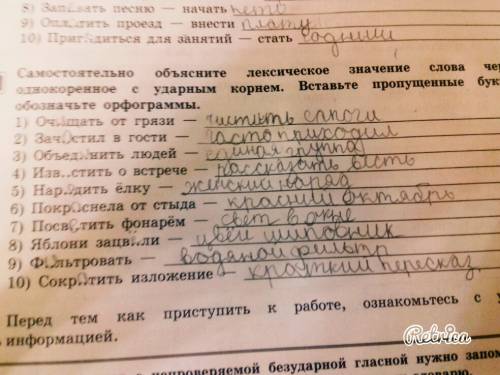 8) Запевать песню — начать петь
9) Оплатить проезд — внести плату
10) Пригодиться для занятий — стать годными
Самостоятельно объясните лексическое значение слова
однокоренное с ударным корнем. Вставьте пропущенные
обозначьте орфограммы.
1) Очищать от грязи — чистить сапоги
2) Зачастил в гости — часто приходил
3) Объединить людей — единая группа
4) Изв..стить о встрече — рассказать весть
5) Нарядить ёлку — женский наряд
6) Покраснела от стыда — красний октябрь
7) Посветить фонарём — свет в окне
8) Яблони зацв..ли — цвёл шиповник
9) Фильтровать — водяной фильтр
10) Сократить изложение — краткий пересказ
Перед тем как приступить к работе, ознакомьтесь с
информацией.
Rebrica
непроверяемой безударной гласной нужно